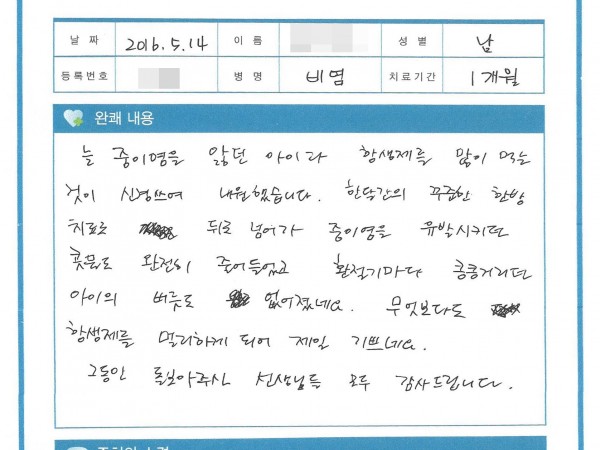 날 짜 2016.5.14 이 름 성 별 남
등록번호 병 명 비염 치료기간 1개월
완쾌 내용
늘 중이염을 앓던 아이라 항생제를 많이 먹는
것이 신경쓰여 내원했습니다. 한달간의 꾸준한 한방
치료로 뒤로 넘어가 중이염을 유발시키던
콧물도 완전히 줄어들었고 환절기마다 킁킁거리던
아이의 버릇도 없어졌네요. 무엇보다도
항생제를 멀리하게 되어 제일 기쁘네요.
그동안 돌보아주신 선생님들 모두 감사드립니다.